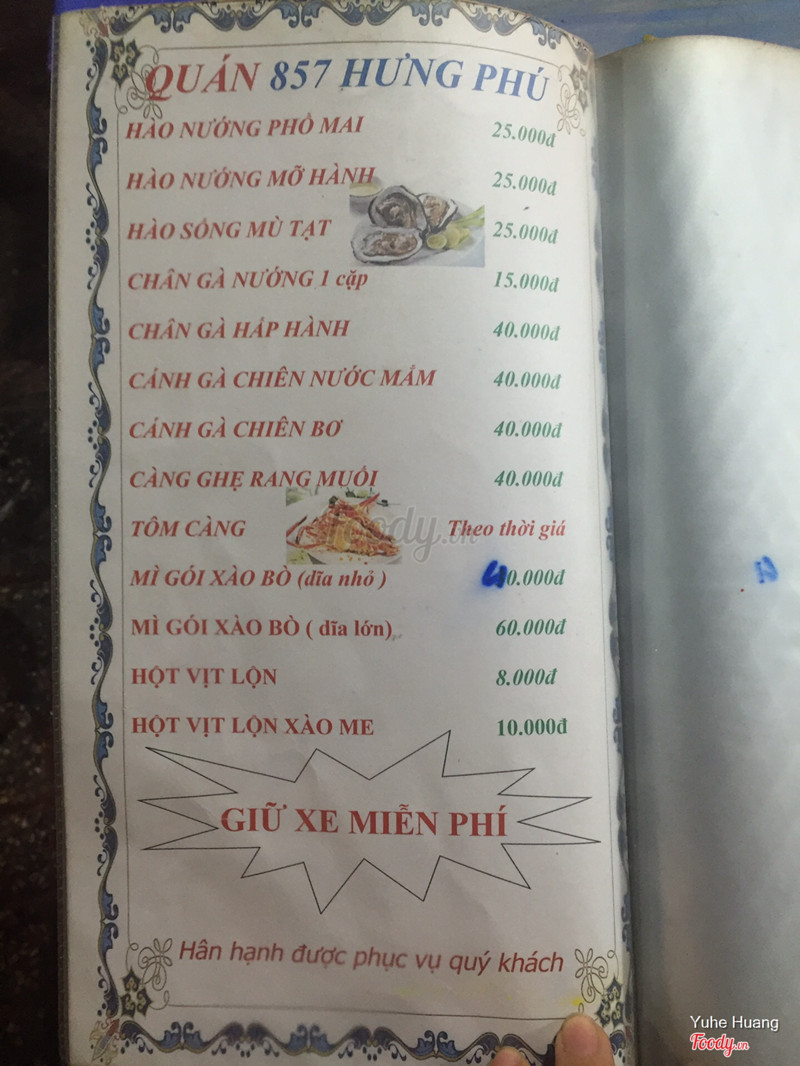 QUÁN 857 HƯNG PHÚ
HÀO NƯỚNG PHÔ MAI 25.000đ
HÀO NƯỚNG MỠ HÀNH 25.000đ
HÀO SỐNG MÙ TẠT 25.000đ
CHÂN GÀ NƯỚNG 1 cặp 15.000đ
CHÂN GÀ HẤP HÀNH 40.000đ
CÁNH GÀ CHIÊN NƯỚC MẮM 40.000đ
CÁNH GÀ CHIÊN BƠ 40.000đ
CÀNG GHẸ RANG MUỐI 40.000đ
TÔM CÀNG Theo thời giá
MÌ GÓI XÀO BÒ (dĩa nhỏ ) 40.000đ
MÌ GÓI XÀO BÒ ( dĩa lớn) 60.000đ
HỘT VỊT LỘN 8.000đ
HỘT VỊT LỘN XÀO ME 10.000đ
GIỮ XE MIỄN PHÍ
Hân hạnh được phục vụ quý khách
Foody.vn
Yuhe Huang
Foody.vn